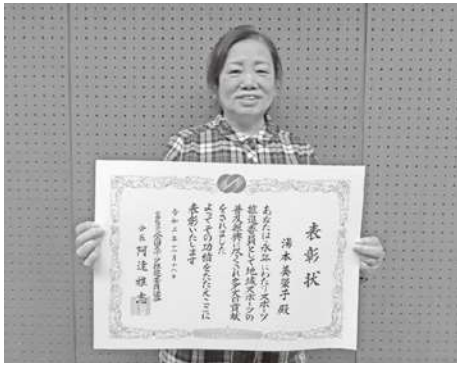 表彰状
湯本美榮子殿
あなたは永年にわたりスポーツ
推進委員として地域スポーツの
普及振興に尽くされ多大の貢献
をされました
よってその功績をたたえここに
表彰いたします
会長 阿達雅志